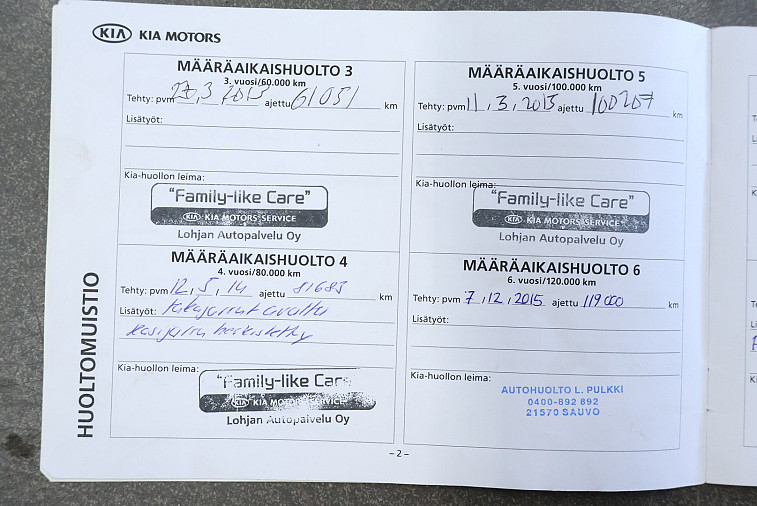 KIA KIA MOTORS
MÄÄRÄAIKAISHUOLTO 3
3. vuosi/60.000 km
Tehty: pvm 27,3 2013 ajettu 61051 km
Lisätyöt:
Kia-huollon leima:
"Family-like Care"
KIA KIA MOTORS SERVICE
Lohjan Autopalvelu Oy
MÄÄRÄAIKAISHUOLTO 4
4. vuosi/80.000 km
Tehty: pvm 12, 5, 14 ajettu 81683 km
Lisätyöt: Takajarrut avattu
käsijarru herkistetty
Kia-huollon leima:
"Family-like Care
KIA KIA MOTORS SERVICE
Lohjan Autopalvelu Oy
MÄÄRÄAIKAISHUOLTO 5
5. vuosi/100.000 km
Tehty: pvm 11, 3, 2015 ajettu 100207 km
Lisätyöt:
Kia-huollon leima:
"Family-like Care"
KIA KIA MOTORS SERVICE
Lohjan Autopalvelu Oy
MÄÄRÄAIKAISHUOLTO 6
6. vuosi/120.000 km
Tehty: pvm 7, 12, 2015 ajettu 119000 km
Lisätyöt:
Kia-huollon leima:
AUTOHUOLTO L. PULKKI
0400-892 892
21570 SAUVO
HUOLTOMUISTIO
– 2 –